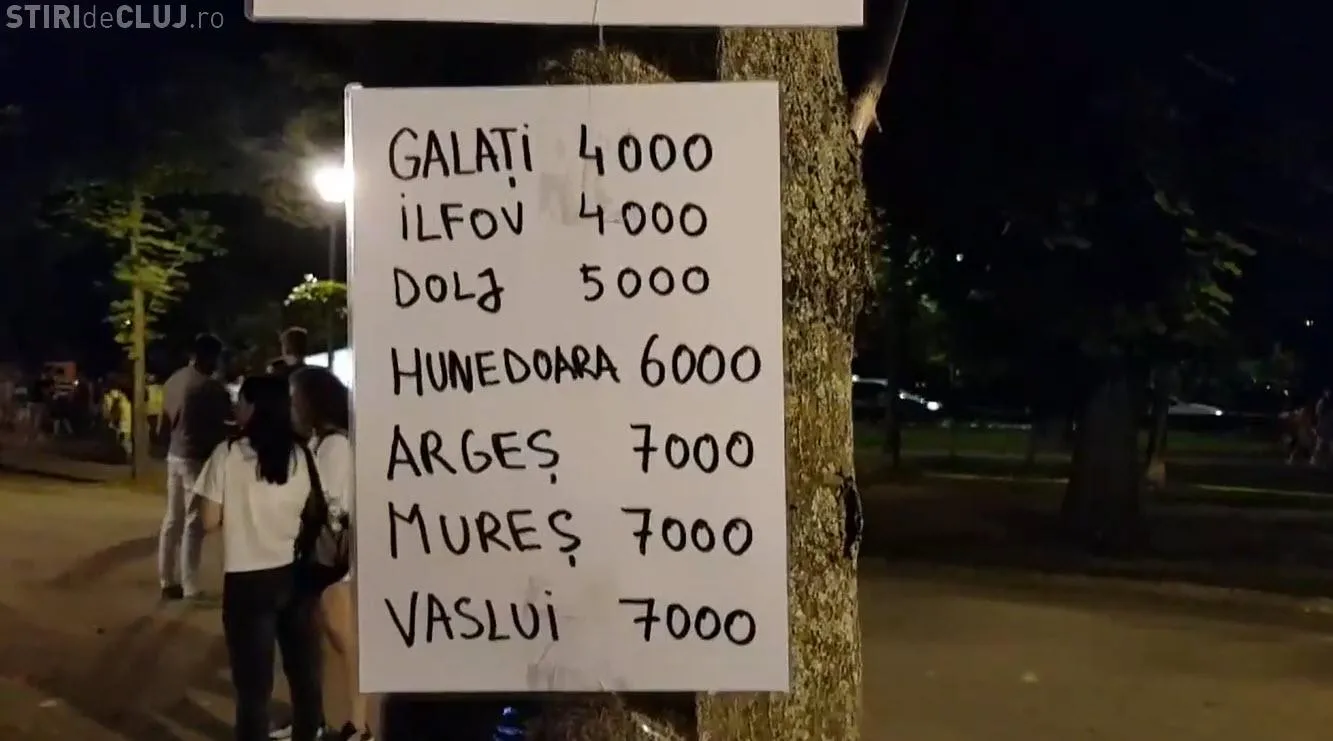 STIRIdeCLUJ.ro
GALAȚI 4000
ILFOV 4000
DOLJ 5000
HUNEDOARA 6000
ARGEȘ 7000
MUREȘ 7000
VASLUI 7000